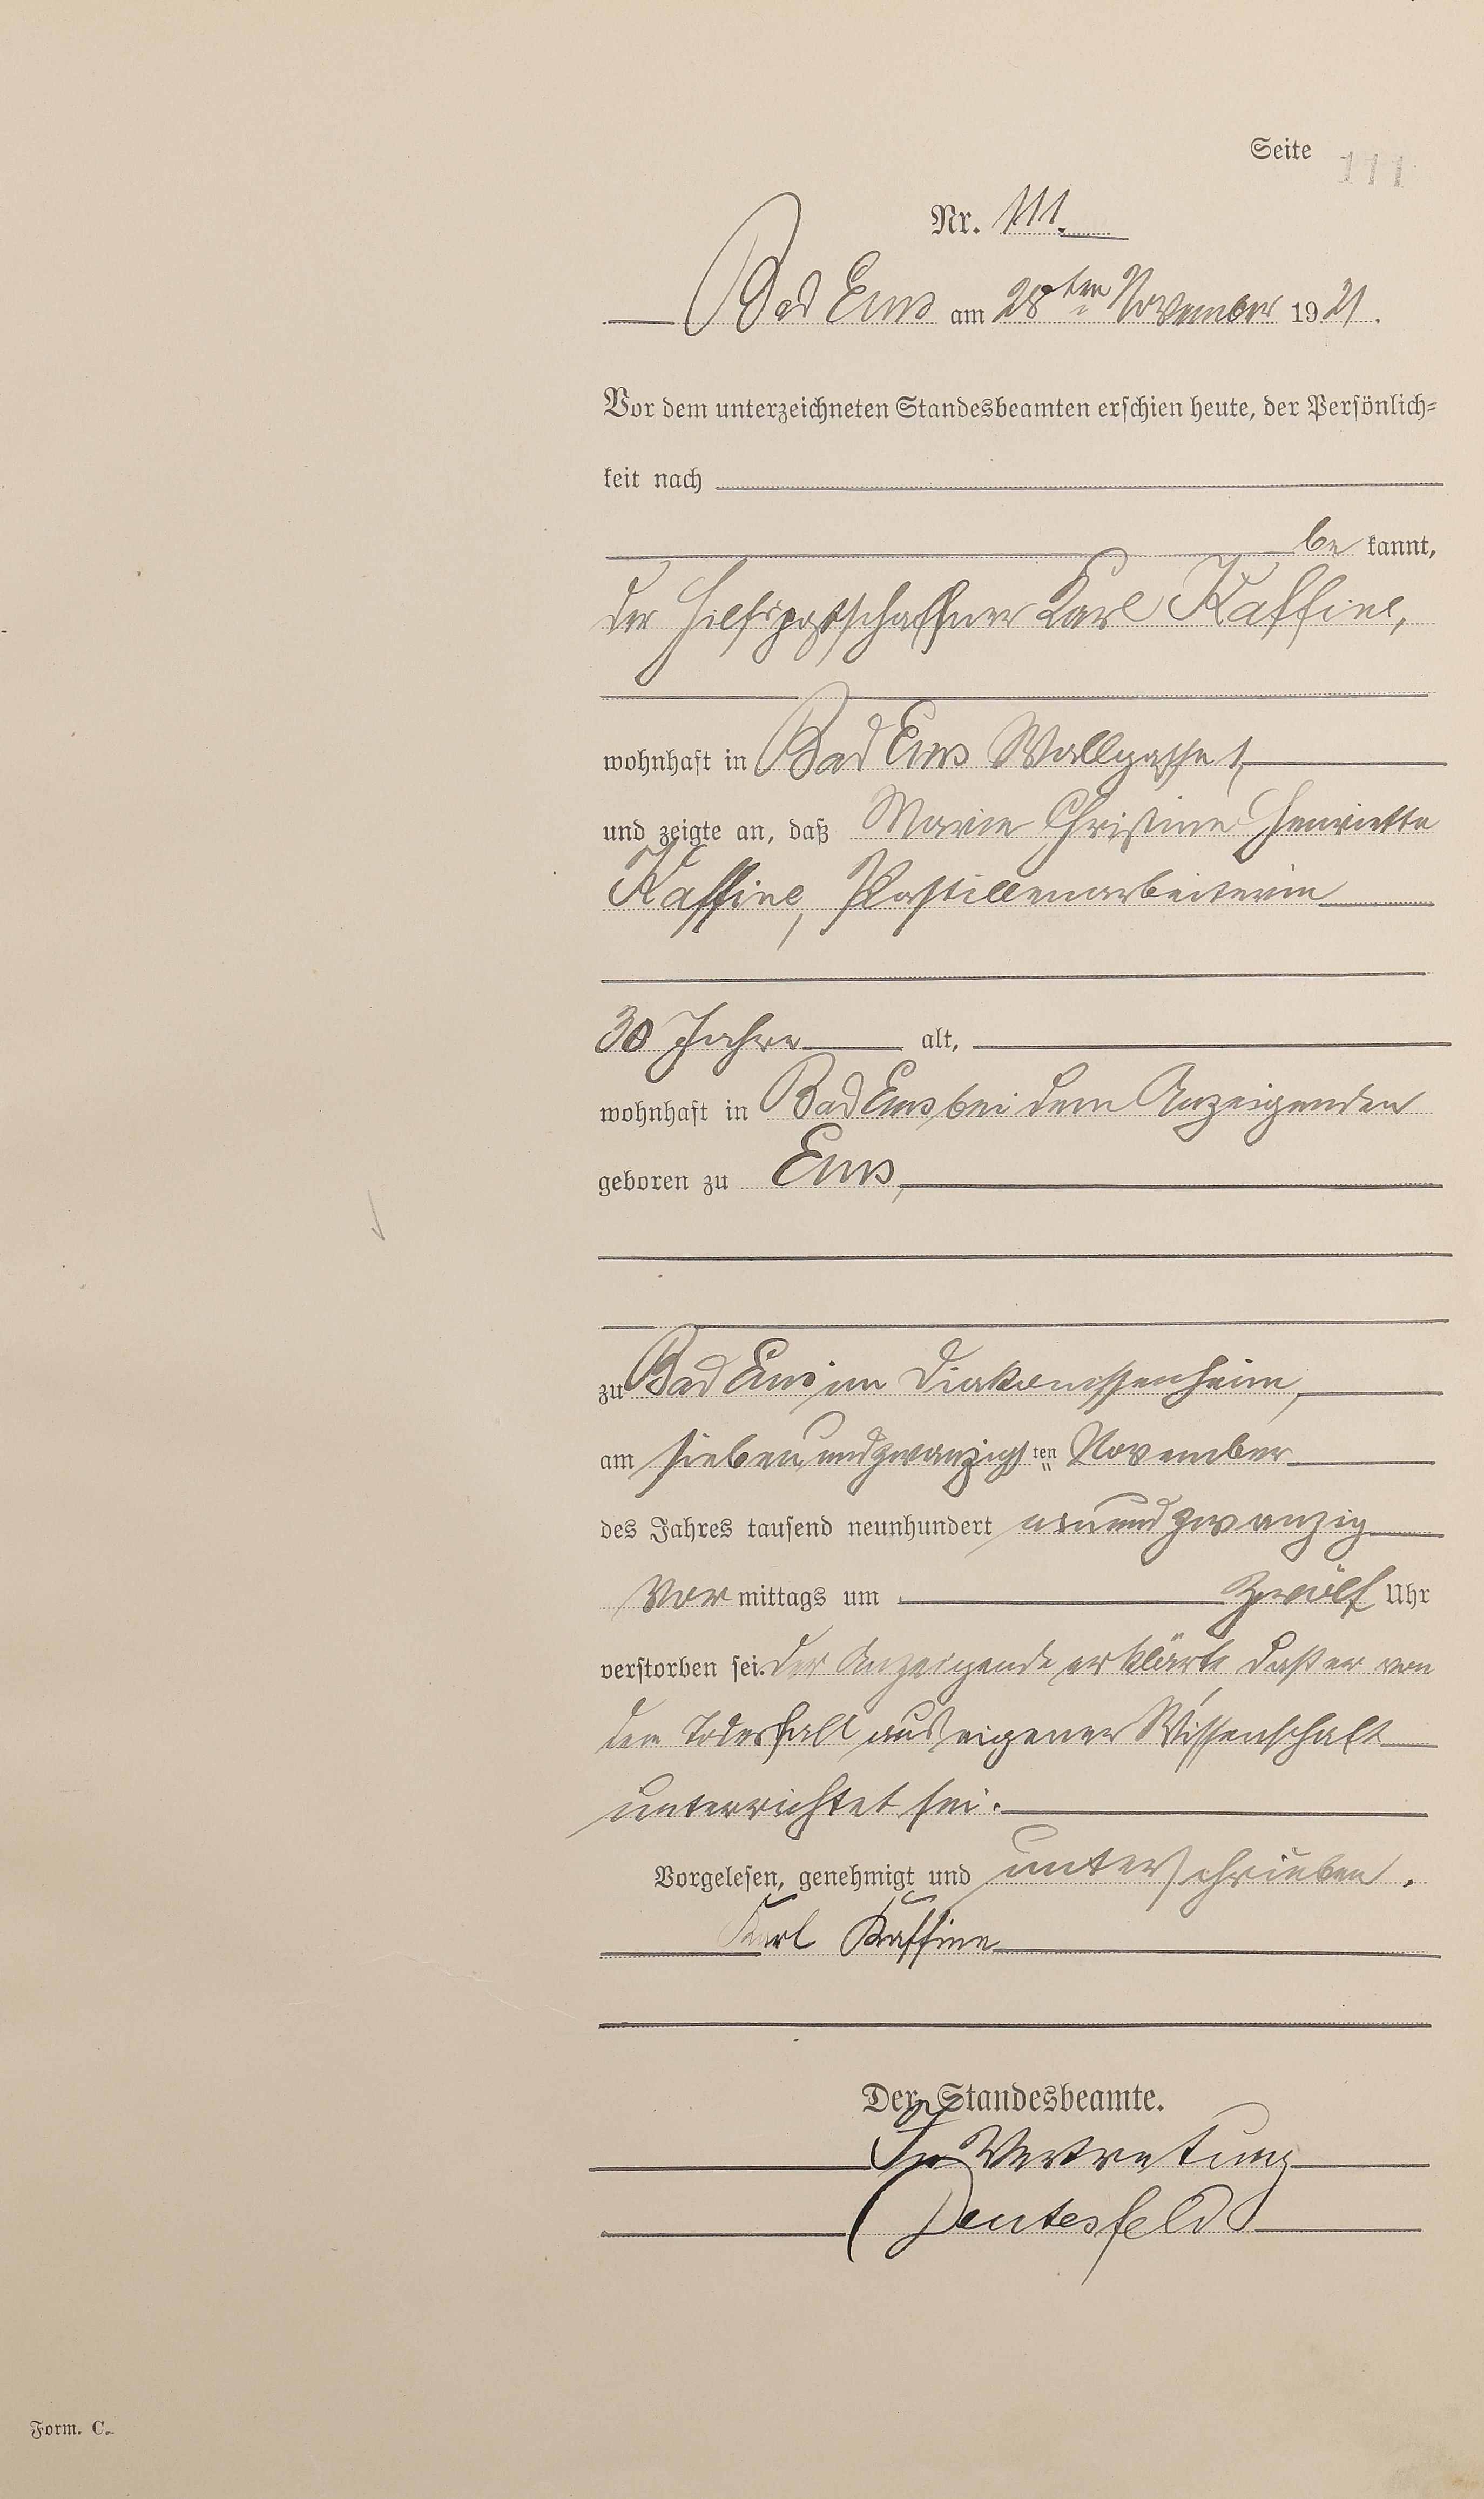 Seite 111
Nr. 111.
Bad Ems am 28ten November 1921.
Vor dem unterzeichneten Standesbeamten erschien heute, der Persönlich-
keit nach
be kannt,
der Hilfspostschaffner Karl Kaffine,
wohnhaft in Bad Ems Wallgasse 1,
und zeigte an, daß Marie Christine Henriette
Kaffine, Pastillenarbeiterin
30 Jahre alt,
wohnhaft in Bad Ems bei dem Anzeigenden
geboren zu Ems,
zu Bad Ems im Diakonissenheim,
am siebenundzwanzigsten November
des Jahres tausend neunhundert einundzwanzig
Vor mittags um zwölf Uhr
verstorben sei. Der Anzeigende erklärte, daß er von
dem Todesfall aus eigener Wissenschaft
unterrichtet sei.
Vorgelesen, genehmigt und unterschrieben.
Karl Kaffine
Der Standesbeamte.
In Vertretung
Dentesfeld
Form. C.